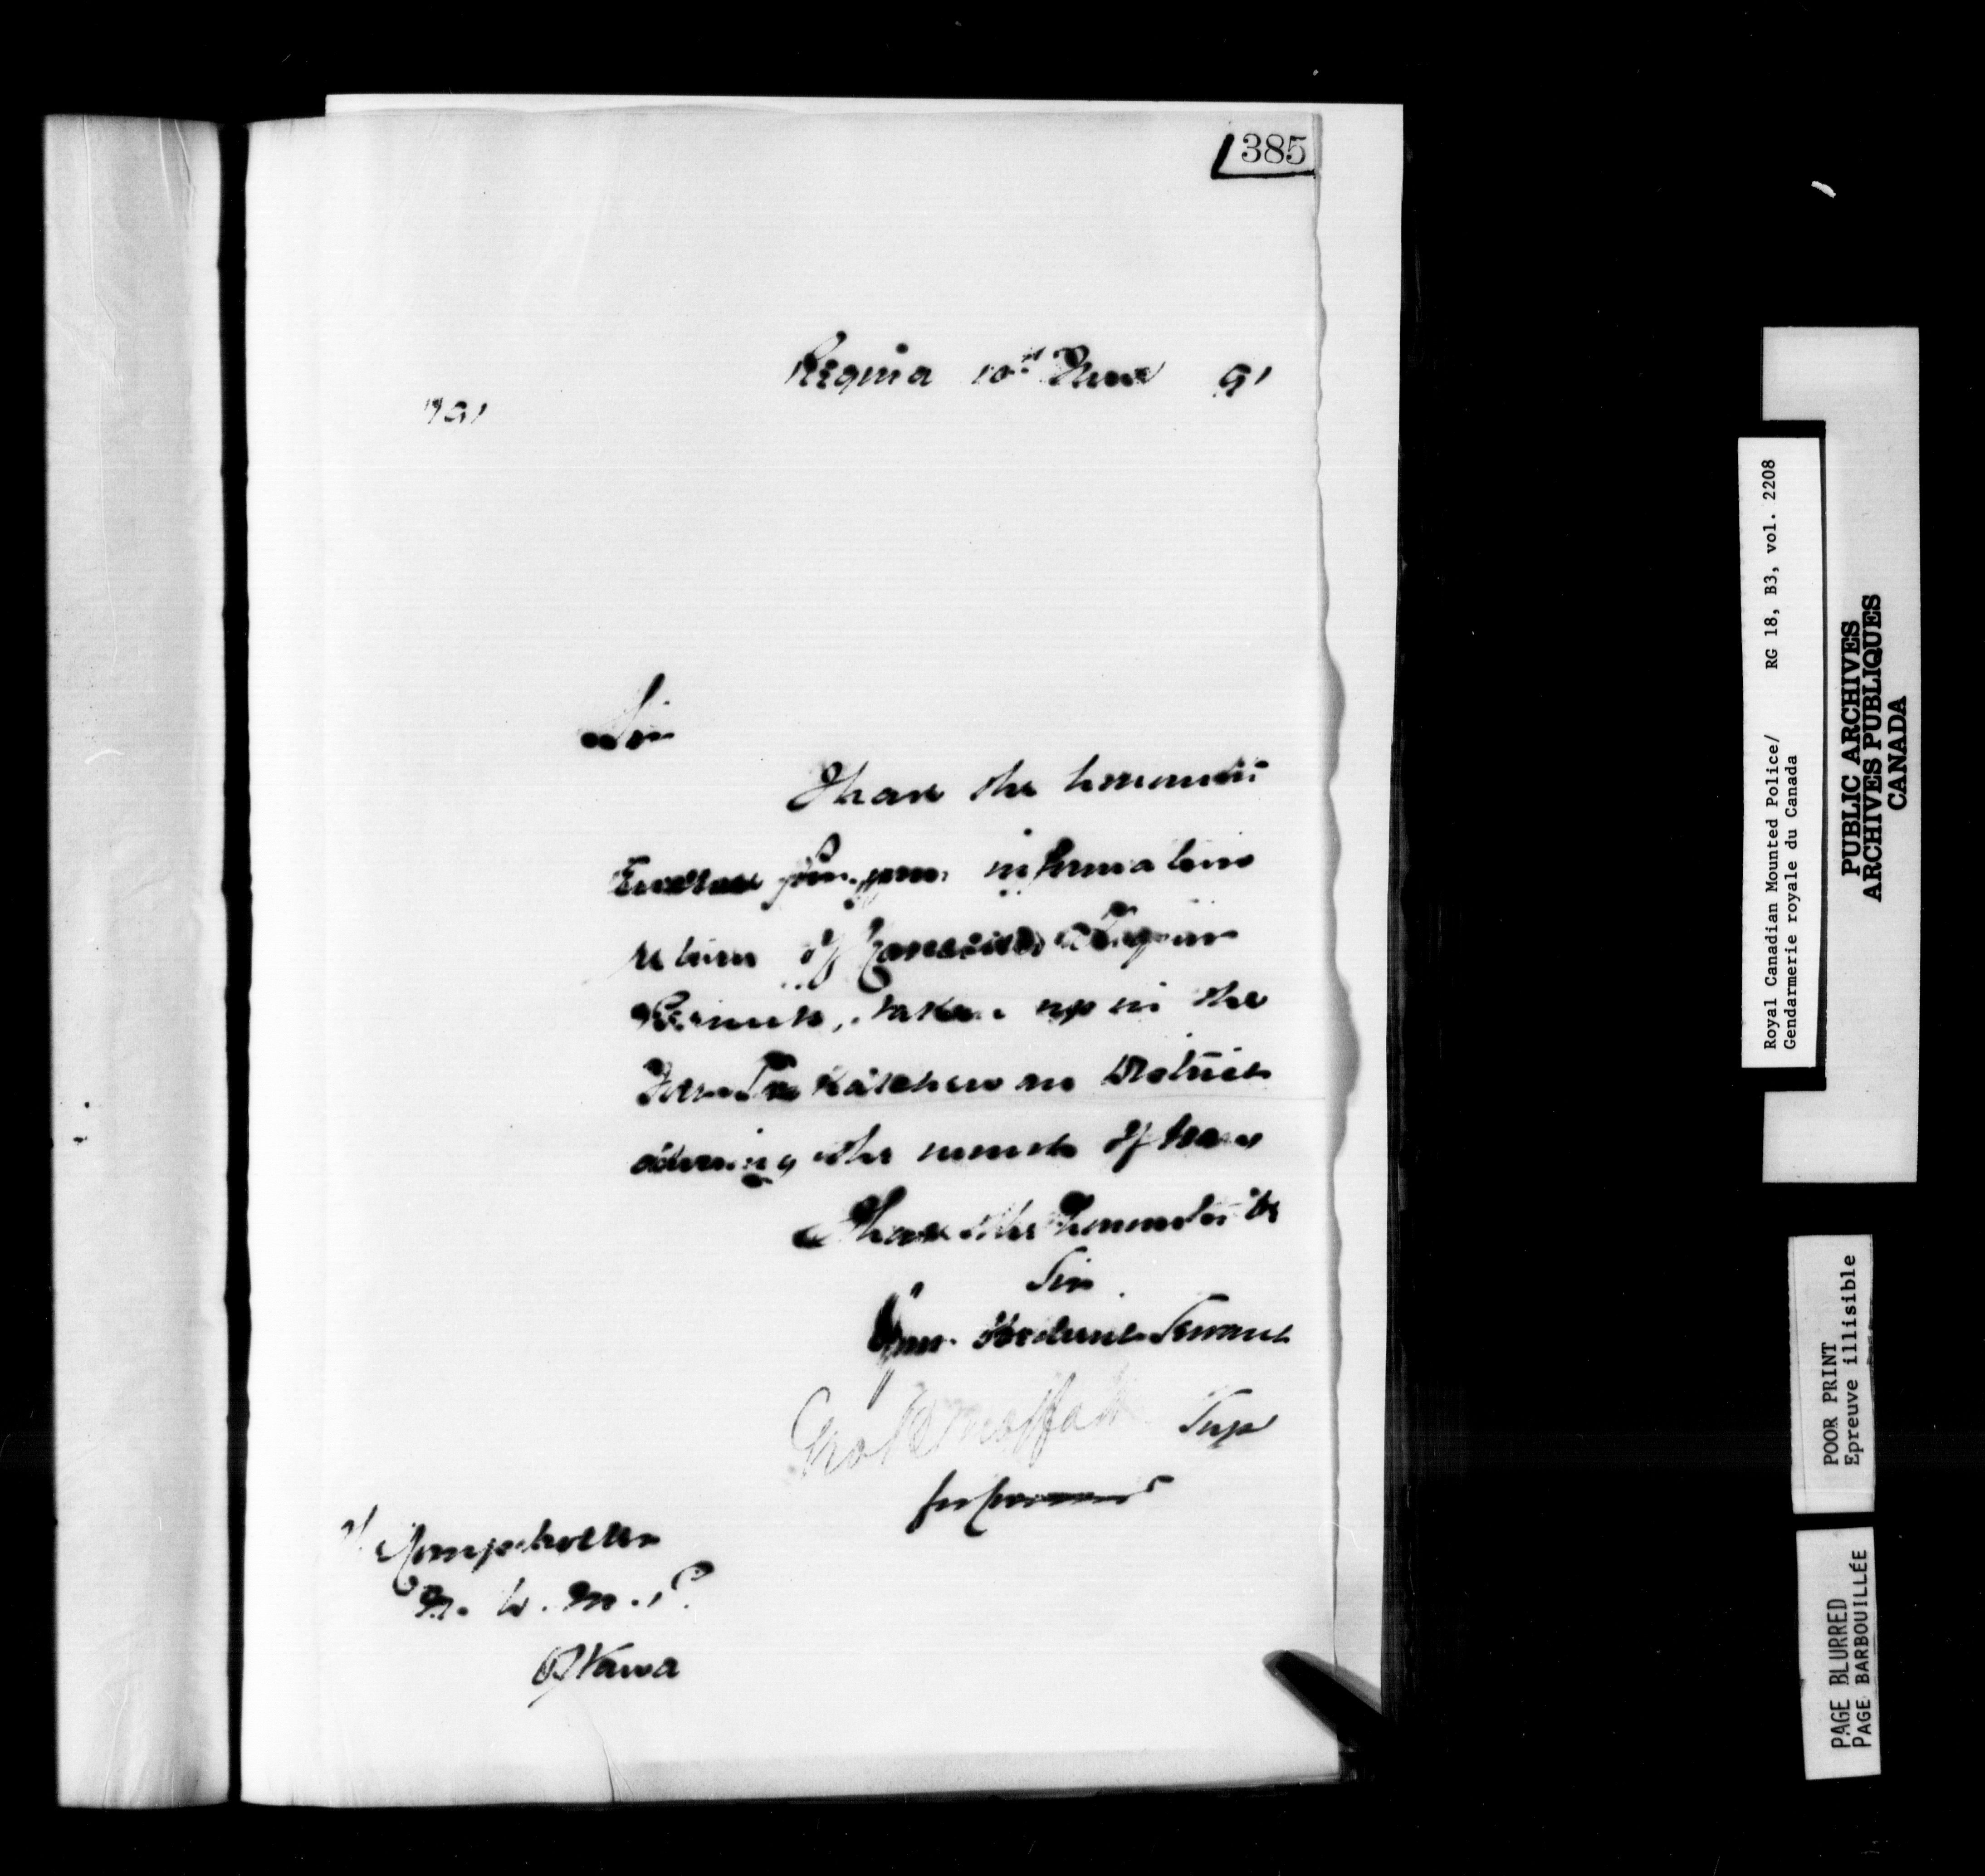 385
Regina 10th June 91
Sir
I have the honour to
Enclose for your information
return of Cancelled Liquor
Permits, taken up in the
Saskatchewan District
during the month of
I have the honour to be
Sir
Your Obedient Servant
Moffatt Supt
for Commr
The Comptroller
N. W. M. P.
Ottawa
Royal Canadian Mounted Police/ RG 18, B3, vol. 2208
Gendarmerie royale du Canada
PUBLIC ARCHIVES
ARCHIVES PUBLIQUES
CANADA
POOR PRINT
Epreuve illisible
PAGE BLURRED
PAGE BARBOUILLÉE